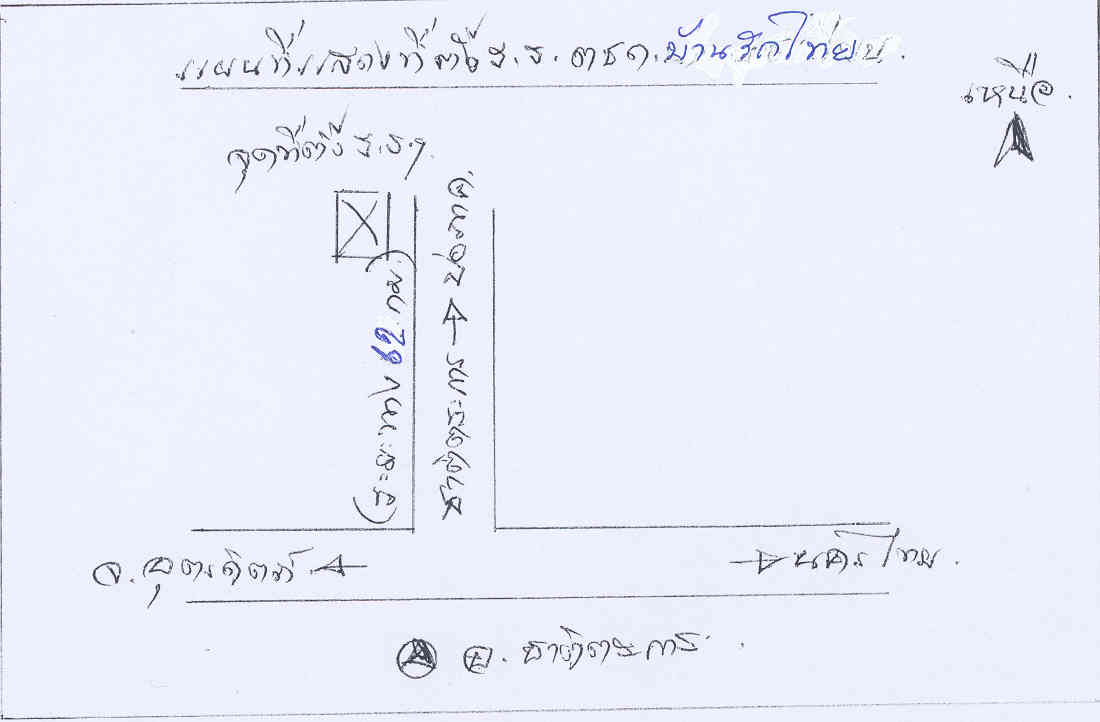 แผนที่แสดงที่ตั้ง ร.ร. ตชด. บ้านรักไทยบ.
เหนือ.
จุดที่ตั้ง ร.ร.ฯ
(ระยะทาง 62 กม.)
ชาติตระการ → บ่อภาค.
จ.อุตรดิตถ์
นครไทย.
อ. ชาติตระการ